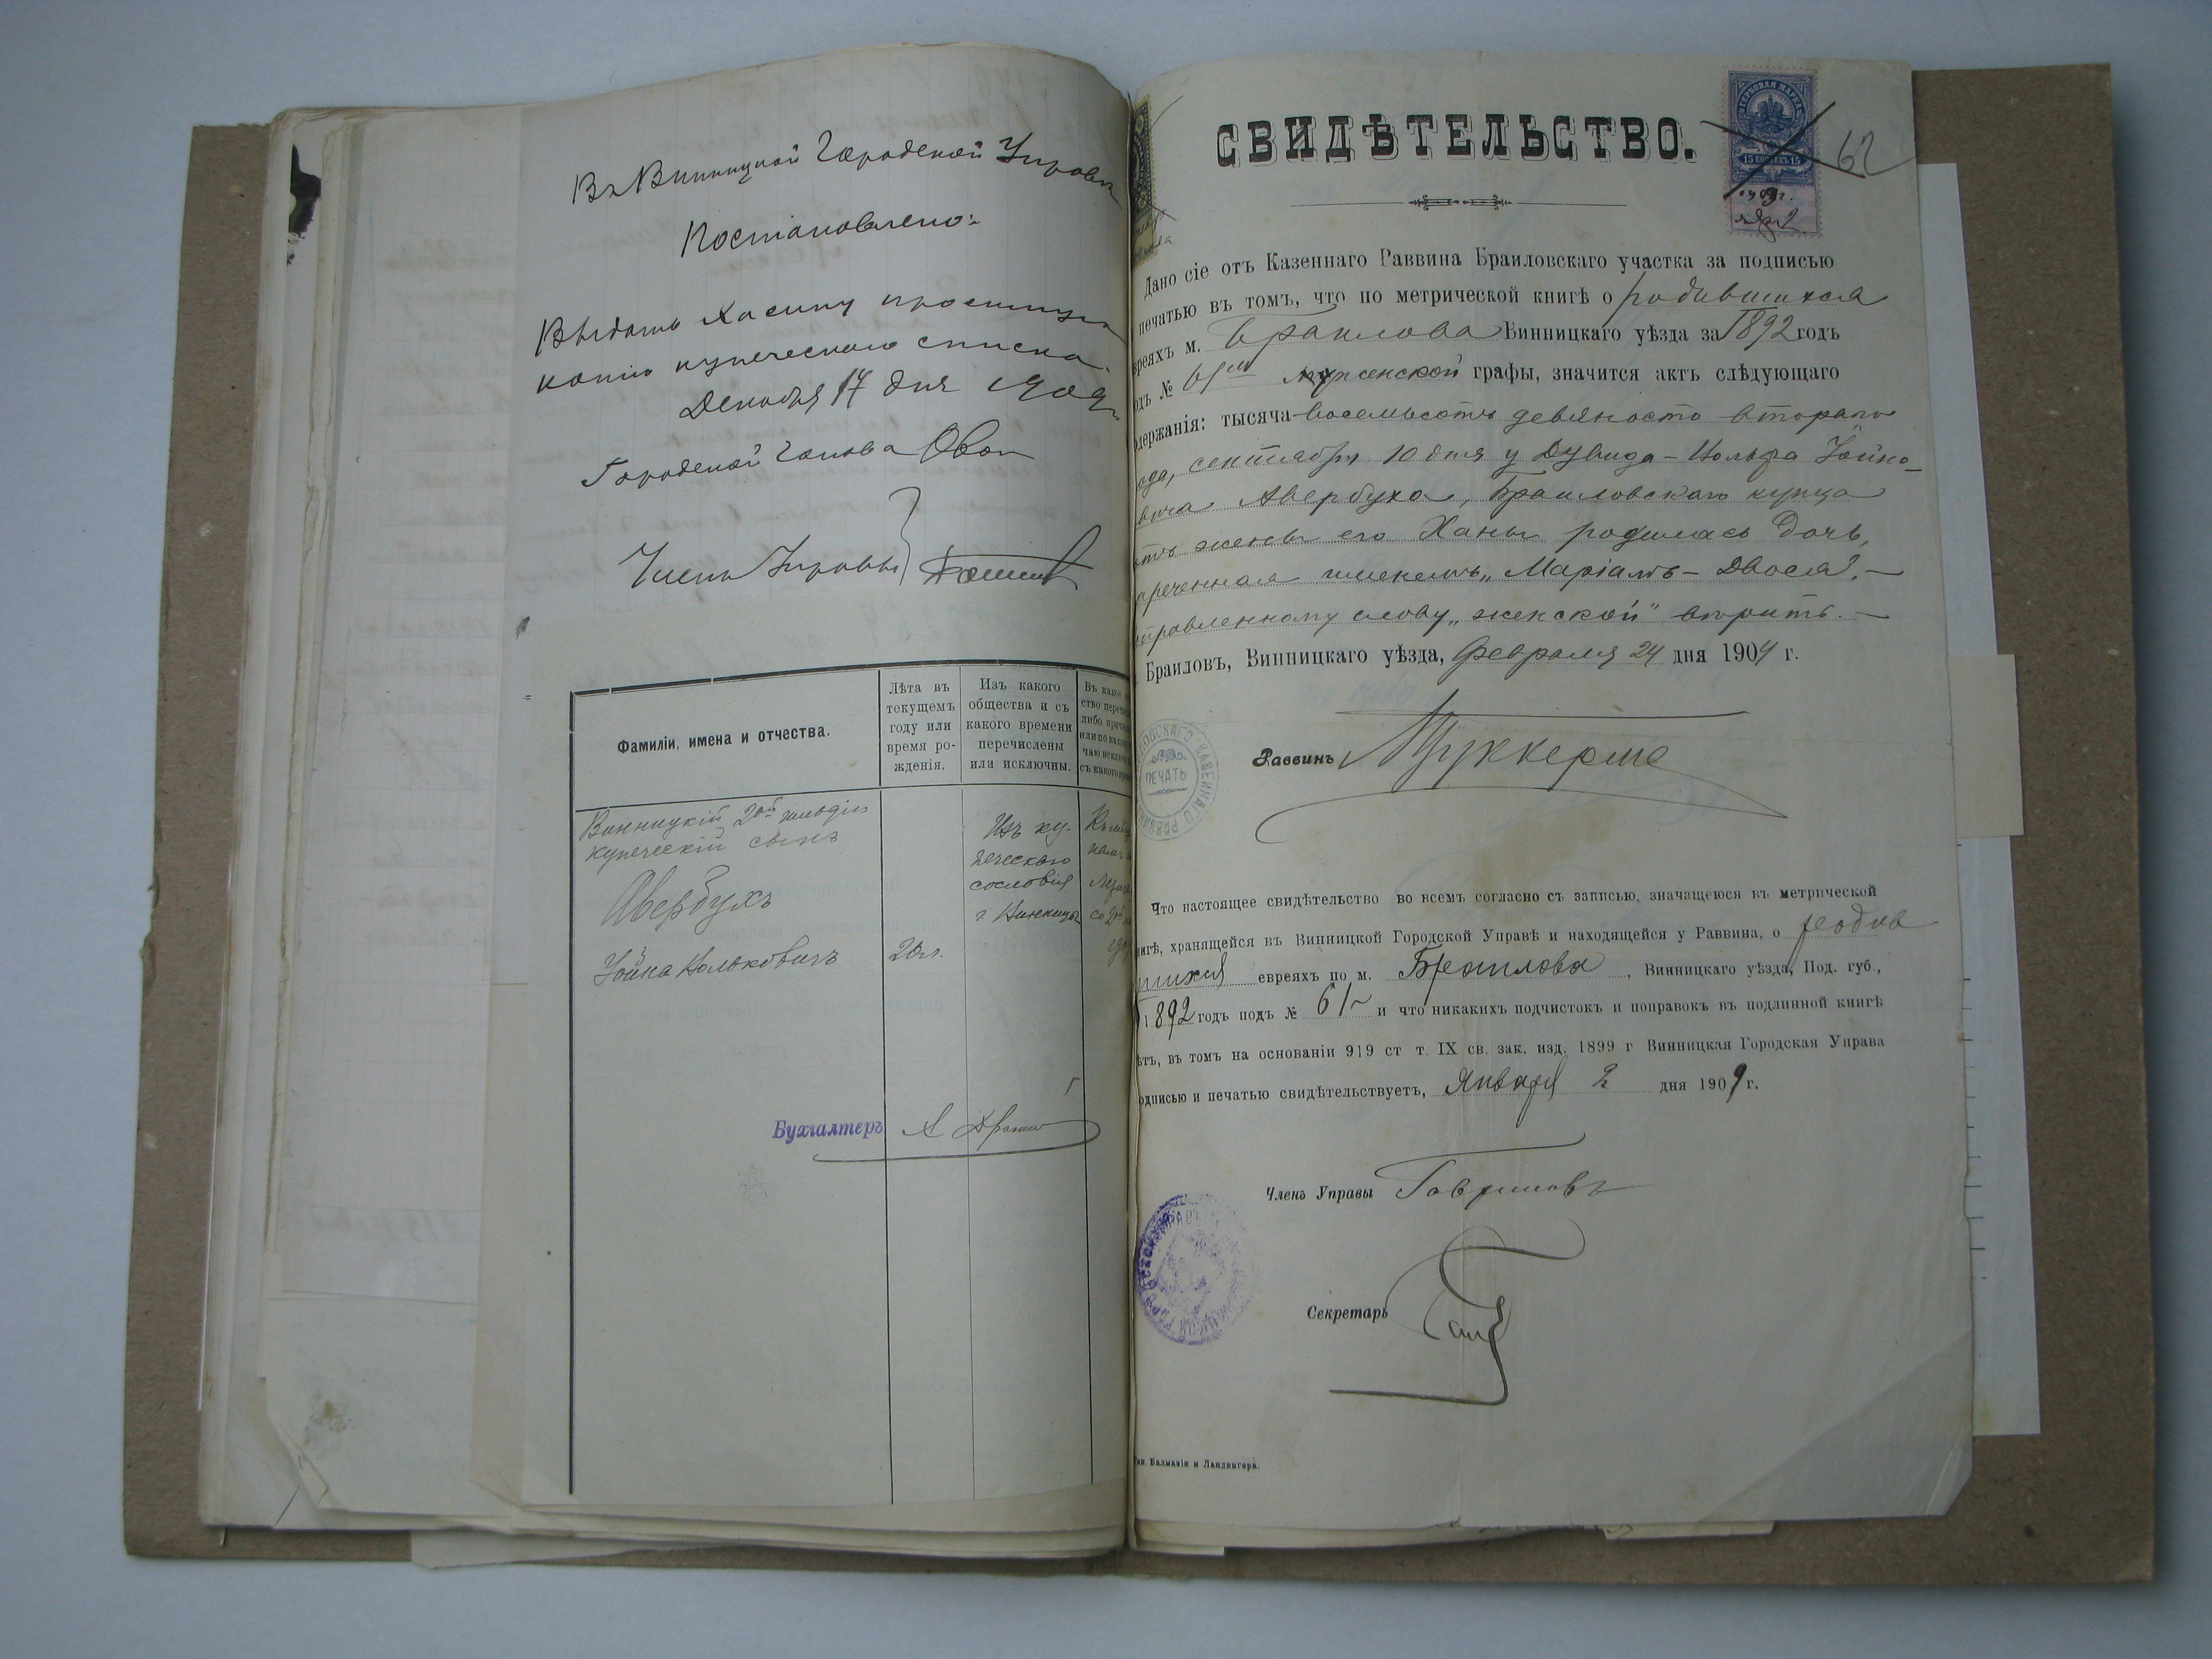 Въ Винницкой Городской Управѣ
Постановлено:
Выдать Хасину просимую
копію купеческаго списка.
Декабря 17 дня 1909 г.
Городской Голова
Члены Управы
Фамиліи, имена и отчества.
Лѣта въ
текущемъ
году или
время ро-
жденія.
Изъ какого
общества и съ
какого времени
перечислены
или исключны.
Въ какое
ство перечи
либо причи
или по како
чаю исключ
съ какого вре
Винницкій 2ой гильдіи
купеческій сынъ
Авербухъ
Іойна Вольковичъ
20 л.
Изъ ку-
печескаго
сословія
г. Винницы
Бухгалтеръ
СВИДѢТЕЛЬСТВО.
ГЕРБОВАЯ МАРКА
15 КОПѢЕКЪ 15
62
Дано сіе отъ Казеннаго Раввина Браиловскаго участка за подписью
печатью въ томъ, что по метрической книгѣ о родившихся
вреяхъ м. Браилова Винницкаго уѣзда за 1892 годъ
одъ № 61 женской графы, значится актъ слѣдующаго
одержанія: тысяча восемьсотъ девяносто второго
ода, сентября 10 дня у Дувида-Вольфа Іойно-
вича Авербуха, Браиловскаго купца
отъ жены его Ханы родилась дочь,
нареченная именемъ „Маріамъ-Двося". —
справленному слову „женской" вѣрить. —
Браиловъ, Винницкаго уѣзда, Февраля 24 дня 1904 г.
Раввинъ
ПЕЧАТЬ
Что настоящее свидѣтельство во всемъ согласно съ записью, значащеюся въ метрической
нигѣ, хранящейся въ Винницкой Городской Управѣ и находящейся у Раввина, о родив
шихся евреяхъ по м. Браилова, Винницкаго уѣзда, Под. губ.,
1892 годъ подъ № 61 и что никакихъ подчистокъ и поправокъ въ подлинной книгѣ
ѣтъ, въ томъ на основаніи 919 ст т. IX св. зак. изд. 1899 г Винницкая Городская Управа
одписью и печатью свидѣтельствуетъ, Января 2 дня 1909 г.
Членъ Управы Гавриловъ
Секретарь
Тип. Балмазія и Ландвигера.